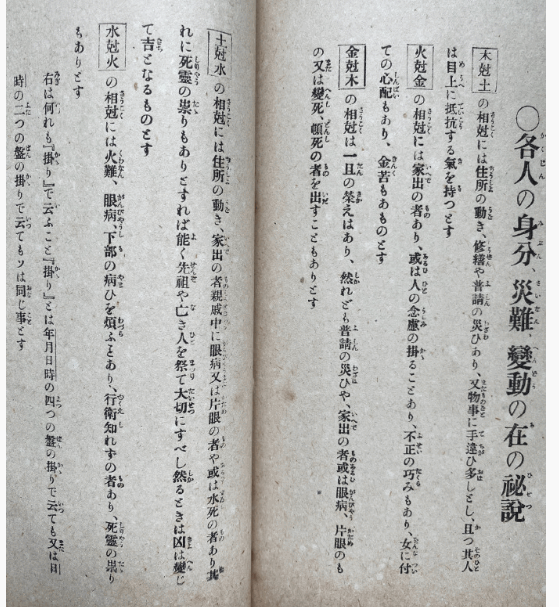 〇各人の身分、災難、變動の在の祕說
木尅土の相尅には住所の動き、修繕や普請の災ひあり、又物事に手違ひ多しとし、且つ其人
は目上に抵抗する氣を持つとす
火尅金の相尅には家出の者あり、或は人の念慮の掛ることあり、不正の巧みもあり、女に付
ての心配もあり、金苦もあるものとす
金尅木の相尅は一旦の榮えはあり、然れども普請の災ひや、家出の者或は眼病、片眼のも
の又は變死、頓死の者を出すこともありとす
土尅水の相尅には住所の動き、家出の者親戚中に眼病又は片眼の者や或は水死の者あり其
れに死靈の祟りもありとすれば能く先祖や亡き人を祭て大切にすべし然るときは凶は變じ
て吉となるものとす
水尅火の相尅には火難、眼病、下部の病ひを煩ふとあり、行衛知れずの者あり、死靈の祟り
もありとす
右は何れも『掛り』で云ふこと『掛り』とは年月日時の四つの盤の掛りで云ても又は日
時の二つの盤の掛りで云てもソは同じ事とす